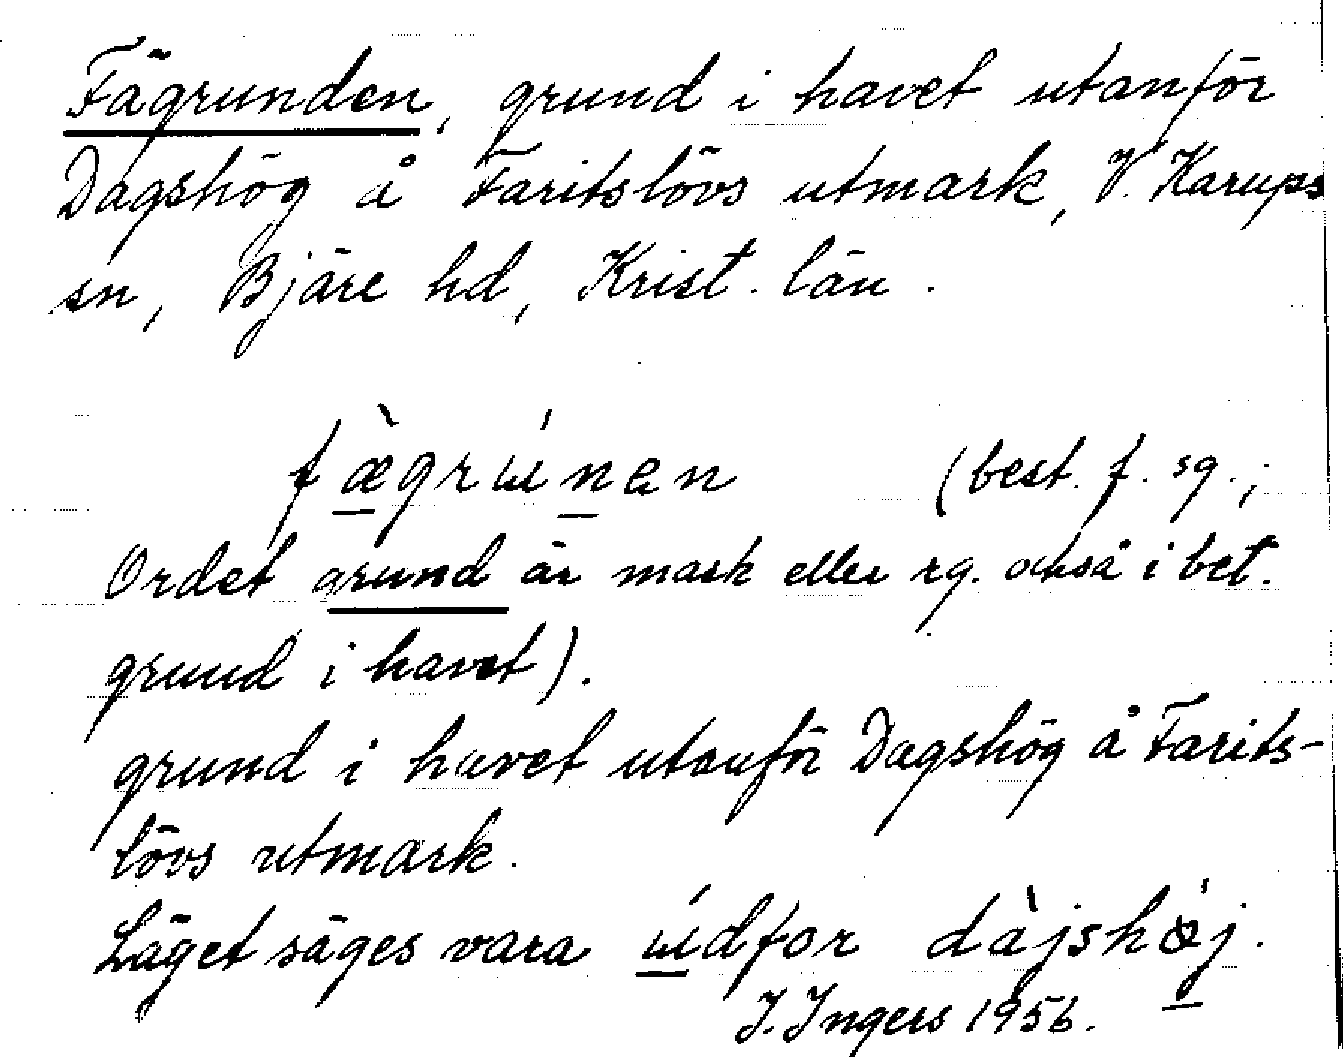 Fägrunden, grund i havet utanför
Dagshög å Faritslövs utmark, V. Karups
sn, Bjäre hd, Krist. län.
fæ̀grɯ́nen (best. f. sg.;
Ordet grund är mask eller rg. också i bet.
grund i havet).
grund i havet utanför Dagshög å Farits-
lövs utmark.
Läget säges vara ɯ́dfor dàjshǿj.
I. Ingers 1956.